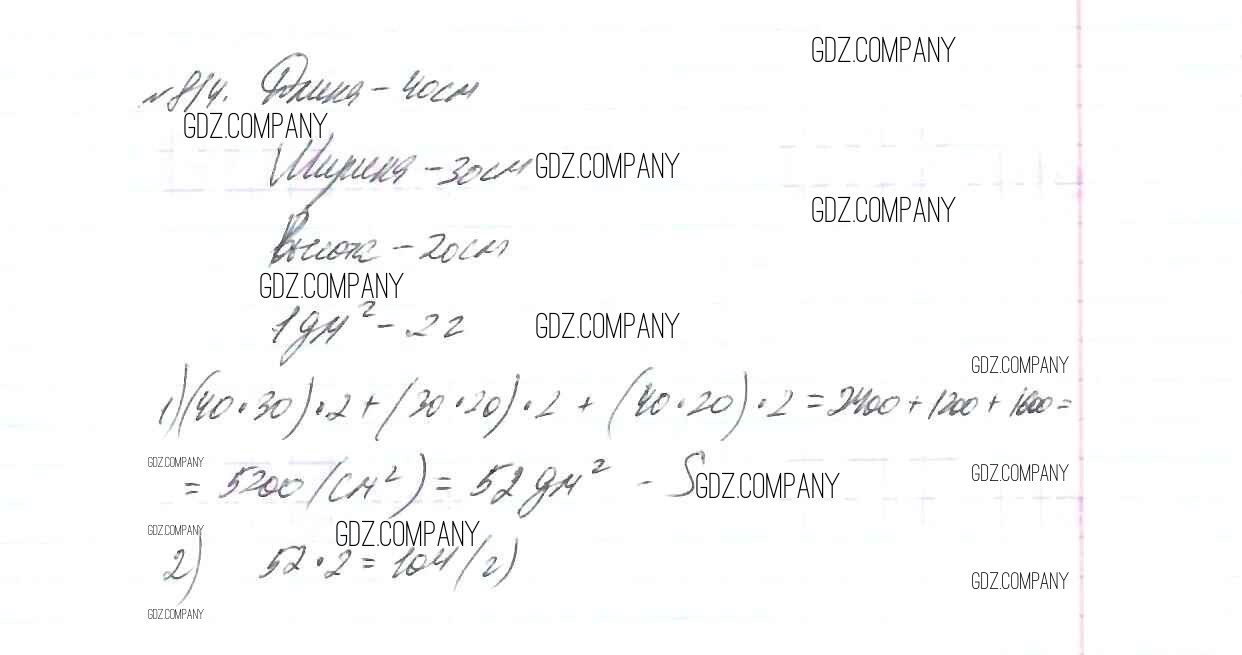 GDZ.COMPANY
№814. Длина - 40см
GDZ.COMPANY
Ширина - 30см GDZ.COMPANY
GDZ.COMPANY
Высота - 20см
GDZ.COMPANY
1дм² - 2 г GDZ.COMPANY
GDZ.COMPANY
1) (40·30)·2 + (30·20)·2 + (40·20)·2 = 2400 + 1200 + 1600 =
GDZ.COMPANY
= 5200 (см²) = 52 дм² - S GDZ.COMPANY GDZ.COMPANY
GDZ.COMPANY GDZ.COMPANY
2) 52·2 = 104 (г)
GDZ.COMPANY
GDZ.COMPANY